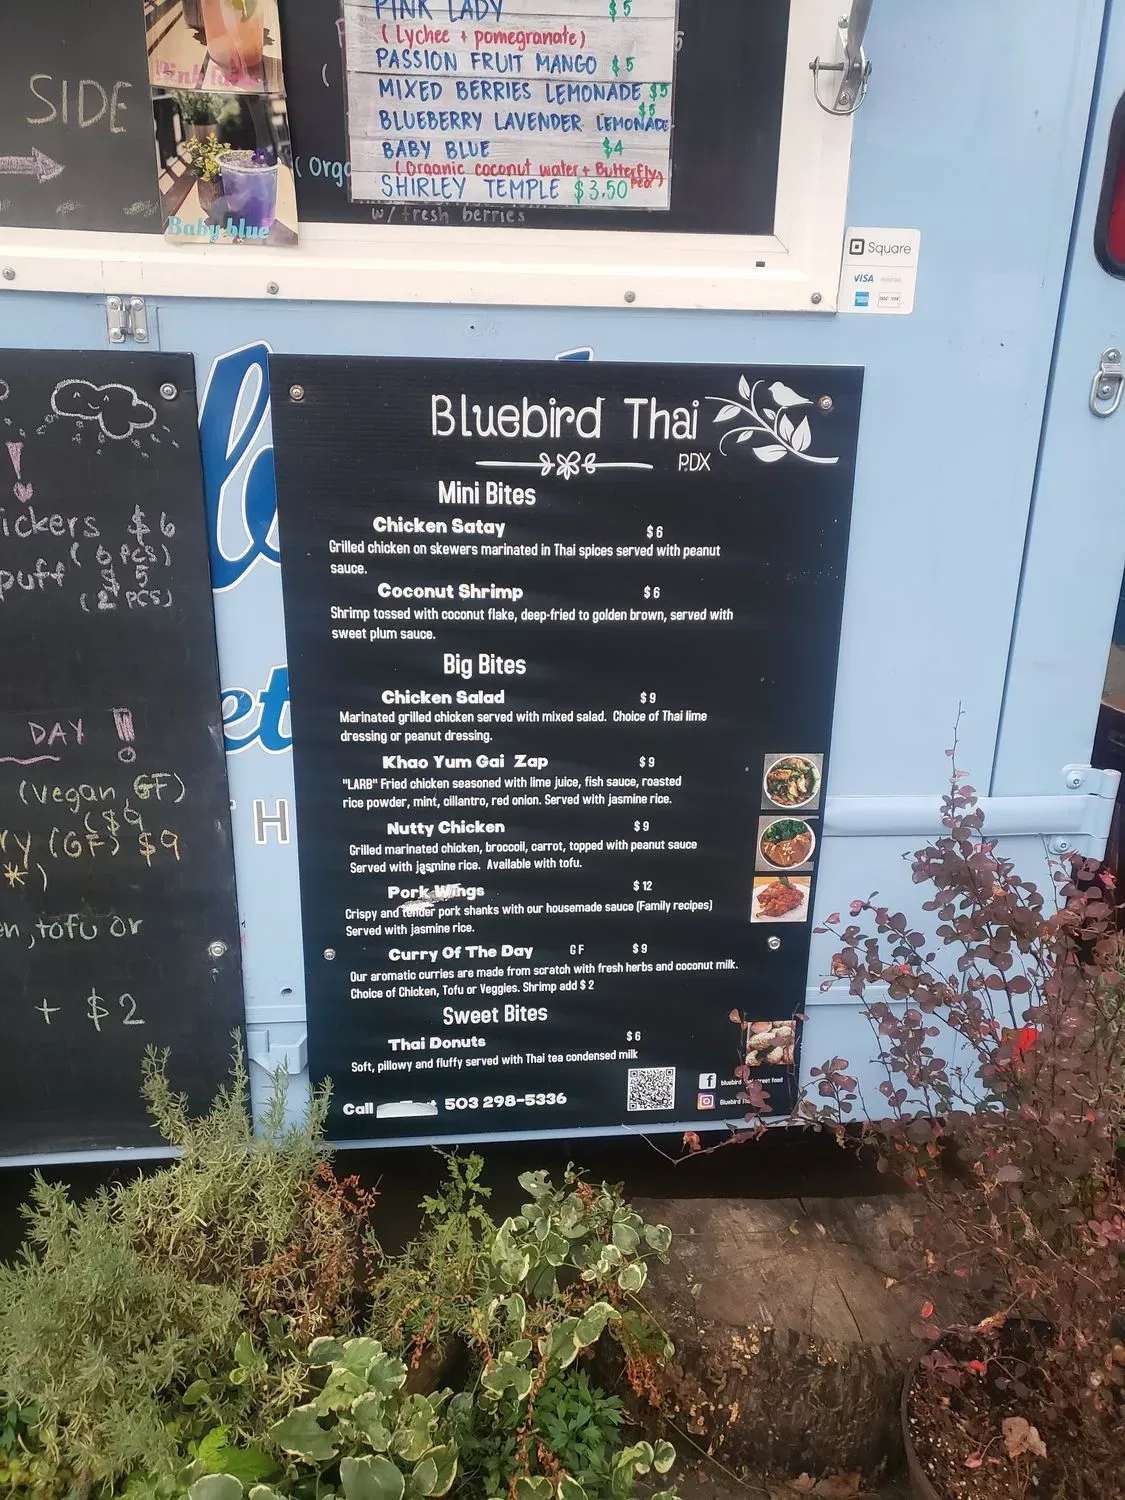 PINK LADY $5
(Lychee + pomegranate)
PASSION FRUIT MANGO $5
MIXED BERRIES LEMONADE $5
BLUEBERRY LAVENDER LEMONADE $5
BABY BLUE $4
(Organic coconut water + Butterfly pea)
SHIRLEY TEMPLE $3.50
w/ fresh berries
SIDE
Pink
Baby blue
(Orga
Square
VISA
Bluebird Thai
PDX
Mini Bites
Chicken Satay $6
Grilled chicken on skewers marinated in Thai spices served with peanut
sauce.
Coconut Shrimp $6
Shrimp tossed with coconut flake, deep-fried to golden brown, served with
sweet plum sauce.
Big Bites
Chicken Salad $9
Marinated grilled chicken served with mixed salad. Choice of Thai lime
dressing or peanut dressing.
Khao Yum Gai Zap $9
"LARB" Fried chicken seasoned with lime juice, fish sauce, roasted
rice powder, mint, cillantro, red onion. Served with jasmine rice.
Nutty Chicken $9
Grilled marinated chicken, broccoil, carrot, topped with peanut sauce
Served with jasmine rice. Available with tofu.
Pork Wings $12
Crispy and tender pork shanks with our housemade sauce (Family recipes)
Served with jasmine rice.
Curry Of The Day GF $9
Our aromatic curries are made from scratch with fresh herbs and coconut milk.
Choice of Chicken, Tofu or Veggies. Shrimp add $2
Sweet Bites
Thai Donuts $6
Soft, pillowy and fluffy served with Thai tea condensed milk
Call 503 298-5336
bluebird
Bluebird
!
ickers $6
(6 pcs)
puff $5
(2 pcs)
DAY !
(vegan, GF)
($9
ry (GF) $9
*)
en, tofu or
+ $2
et
H